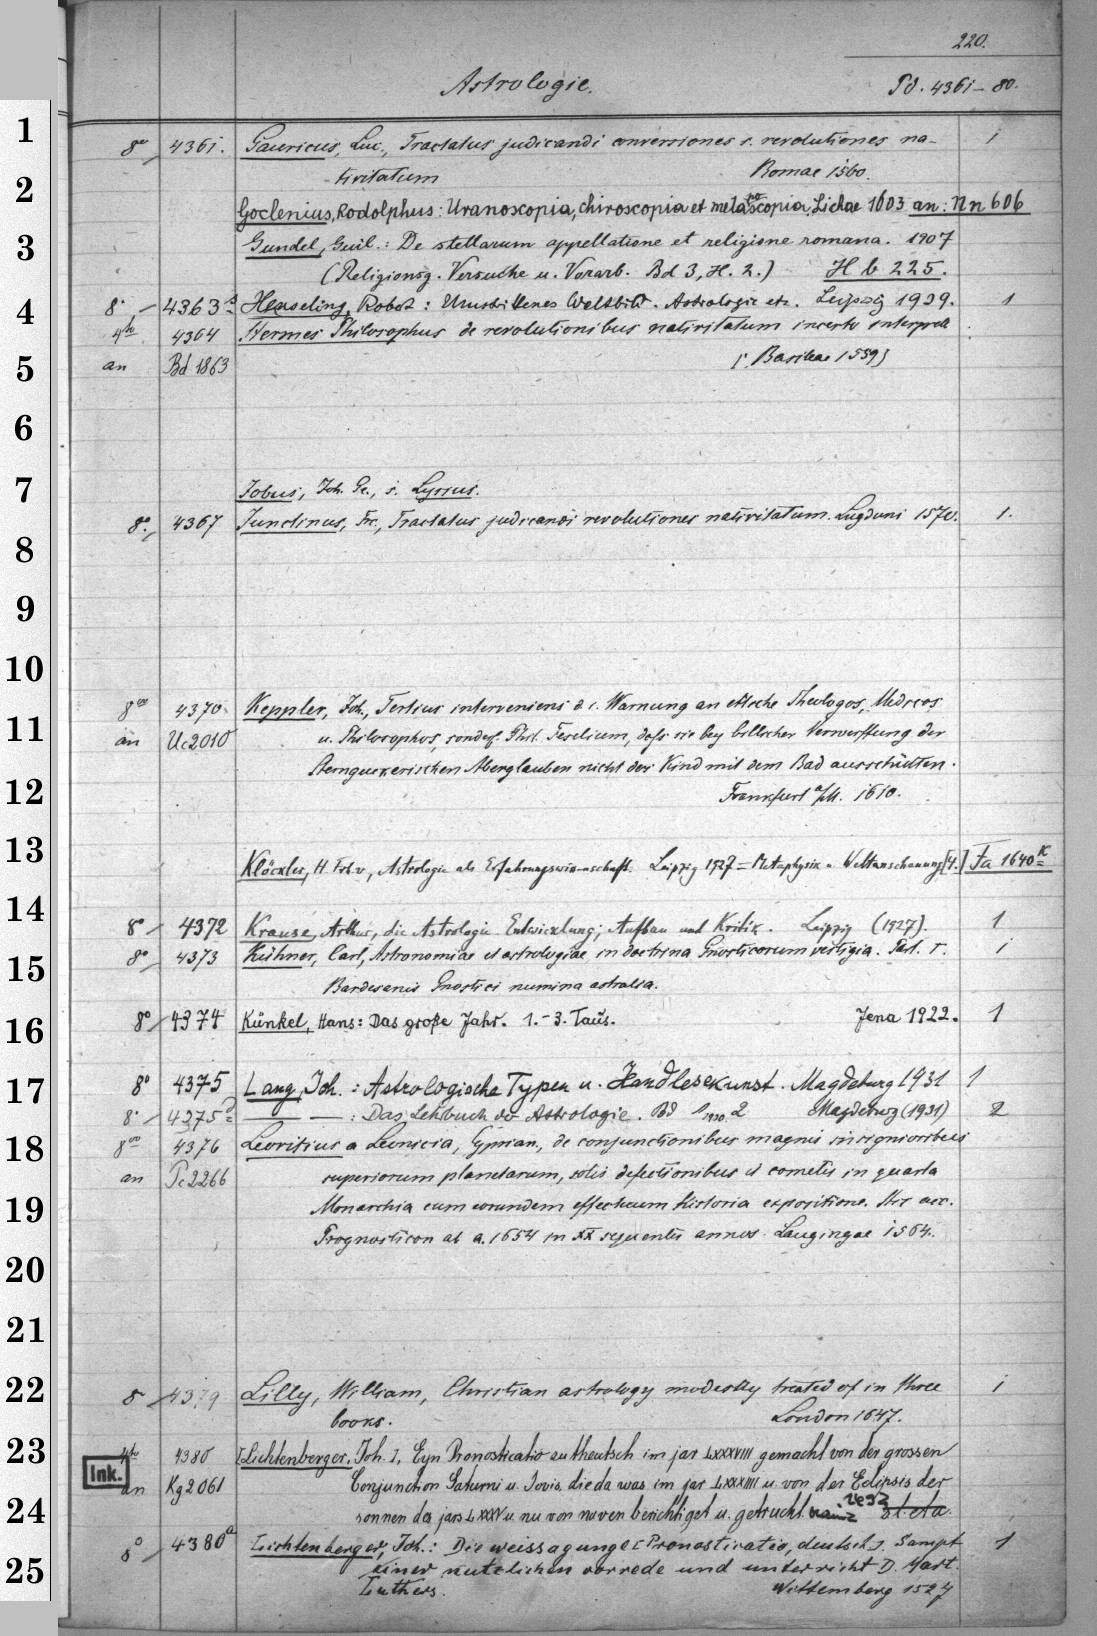 220.
Astrologie. Pd. 4361-80.
1
8° 4361. Gauricus, Luc., Tractatus judicandi conversiones s. revolutiones na- 1
2
tivitatum Romae 1560.
Goclenius, Rodolphus: Uranoscopia, chiroscopia et metoposcopia, Lichae 1603 an: Nn 606
3
Gundel, Guil.: De stellarum appellatione et religione romana. 1907
(Religionsg. Versuche u. Vorarb. Bd 3, H. 2.) H b 225.
4
8° 4363 a Henseling, Robert: Umstrittenes Weltbild. Astrologie etc. Leipzig 1939. 1
4to 4364 Hermes Philosophus de revolutionibus nativitatum incerto interprete
5
an Bd 1863 [Basileae 1559]
6
7
Jobus, Joh. Ge., s. Lyssus.
8°. 4367 Junctinus, Frc., Tractatus judicandi revolutiones nativitatum. Lugduni 1570. 1.
8
9
10
8vo 4370 Keppler, Joh., Tertius interveniens d. i. Warnung an etliche Theologos, Medicos
11
an Uc 2010 u. Philosophos, sonderl. Phil. Feselium, dass sie bey billicher Verwerffung der
Sternguckerischen Aberglauben nicht das Kind mit dem Bad ausschütten.
12
Frankfurt a/M. 1610.
13
Klöckler, H. Frh. v., Astrologie als Erfahrungswissenschaft. Leipzig 1927 = Metaphysik u. Weltanschauung [4.] Fa 1640 k
14
8° 4372 Krause, Arthur, die Astrologie. Entwicklung, Aufbau und Kritik. Leipzig (1927). 1
15
8° 4373 Kühner, Carl, Astronomiae et astrologiae in doctrina Gnosticorum vestigia. Part. I. 1
Bardesanis Gnostici numina astralia.
16
8° 4374 Künkel, Hans: Das große Jahr. 1.-3. Taus. Jena 1922. 1
17
8° 4375 Lang, Joh.: Astrologische Typen u. Handlesekunst. Magdeburg 1931 1
8° 4375 a — — : Das Lehrbuch der Astrologie. Bd 1 1930. 2 Magdeburg (1931) 2
18
8vo 4376 Leovitius a Leonicia, Cyprian., de conjunctionibus magnis insignioribus
an Pc 2266 superiorum planetarum, solis defectionibus et cometis in quarta
19
Monarchia cum eorundem effectuum historia expositione. His acc.
Prognosticon ab a. 1654 in XX sequentis annos. Laugingae 1564.
20
21
22
8° 4379 Lilly, William, Christian astrology modestly treated of in three 1
books. London 1647.
23
4to 4380 [Lichtenberger, Joh.], Eyn Pronosticatio zu theutsch im jar LXXXVIII gemacht von der grossen
Ink. an Kg 2061 Conjunction Saturni u. Jovis, die da was im jar LXXXIIII u. von der Eclipsis der
24
sonnen des jars LXXXV u. nu von nuven berichtiget u. getruckt.
25
8° 4380 a Lichtenberger, Joh.: Die weissagunge [Pronosticatio, deutsch]. Sampt 1
einer nutzlichen vorrede und unterricht D. Mart.
Luthers. Wittemberg 1527